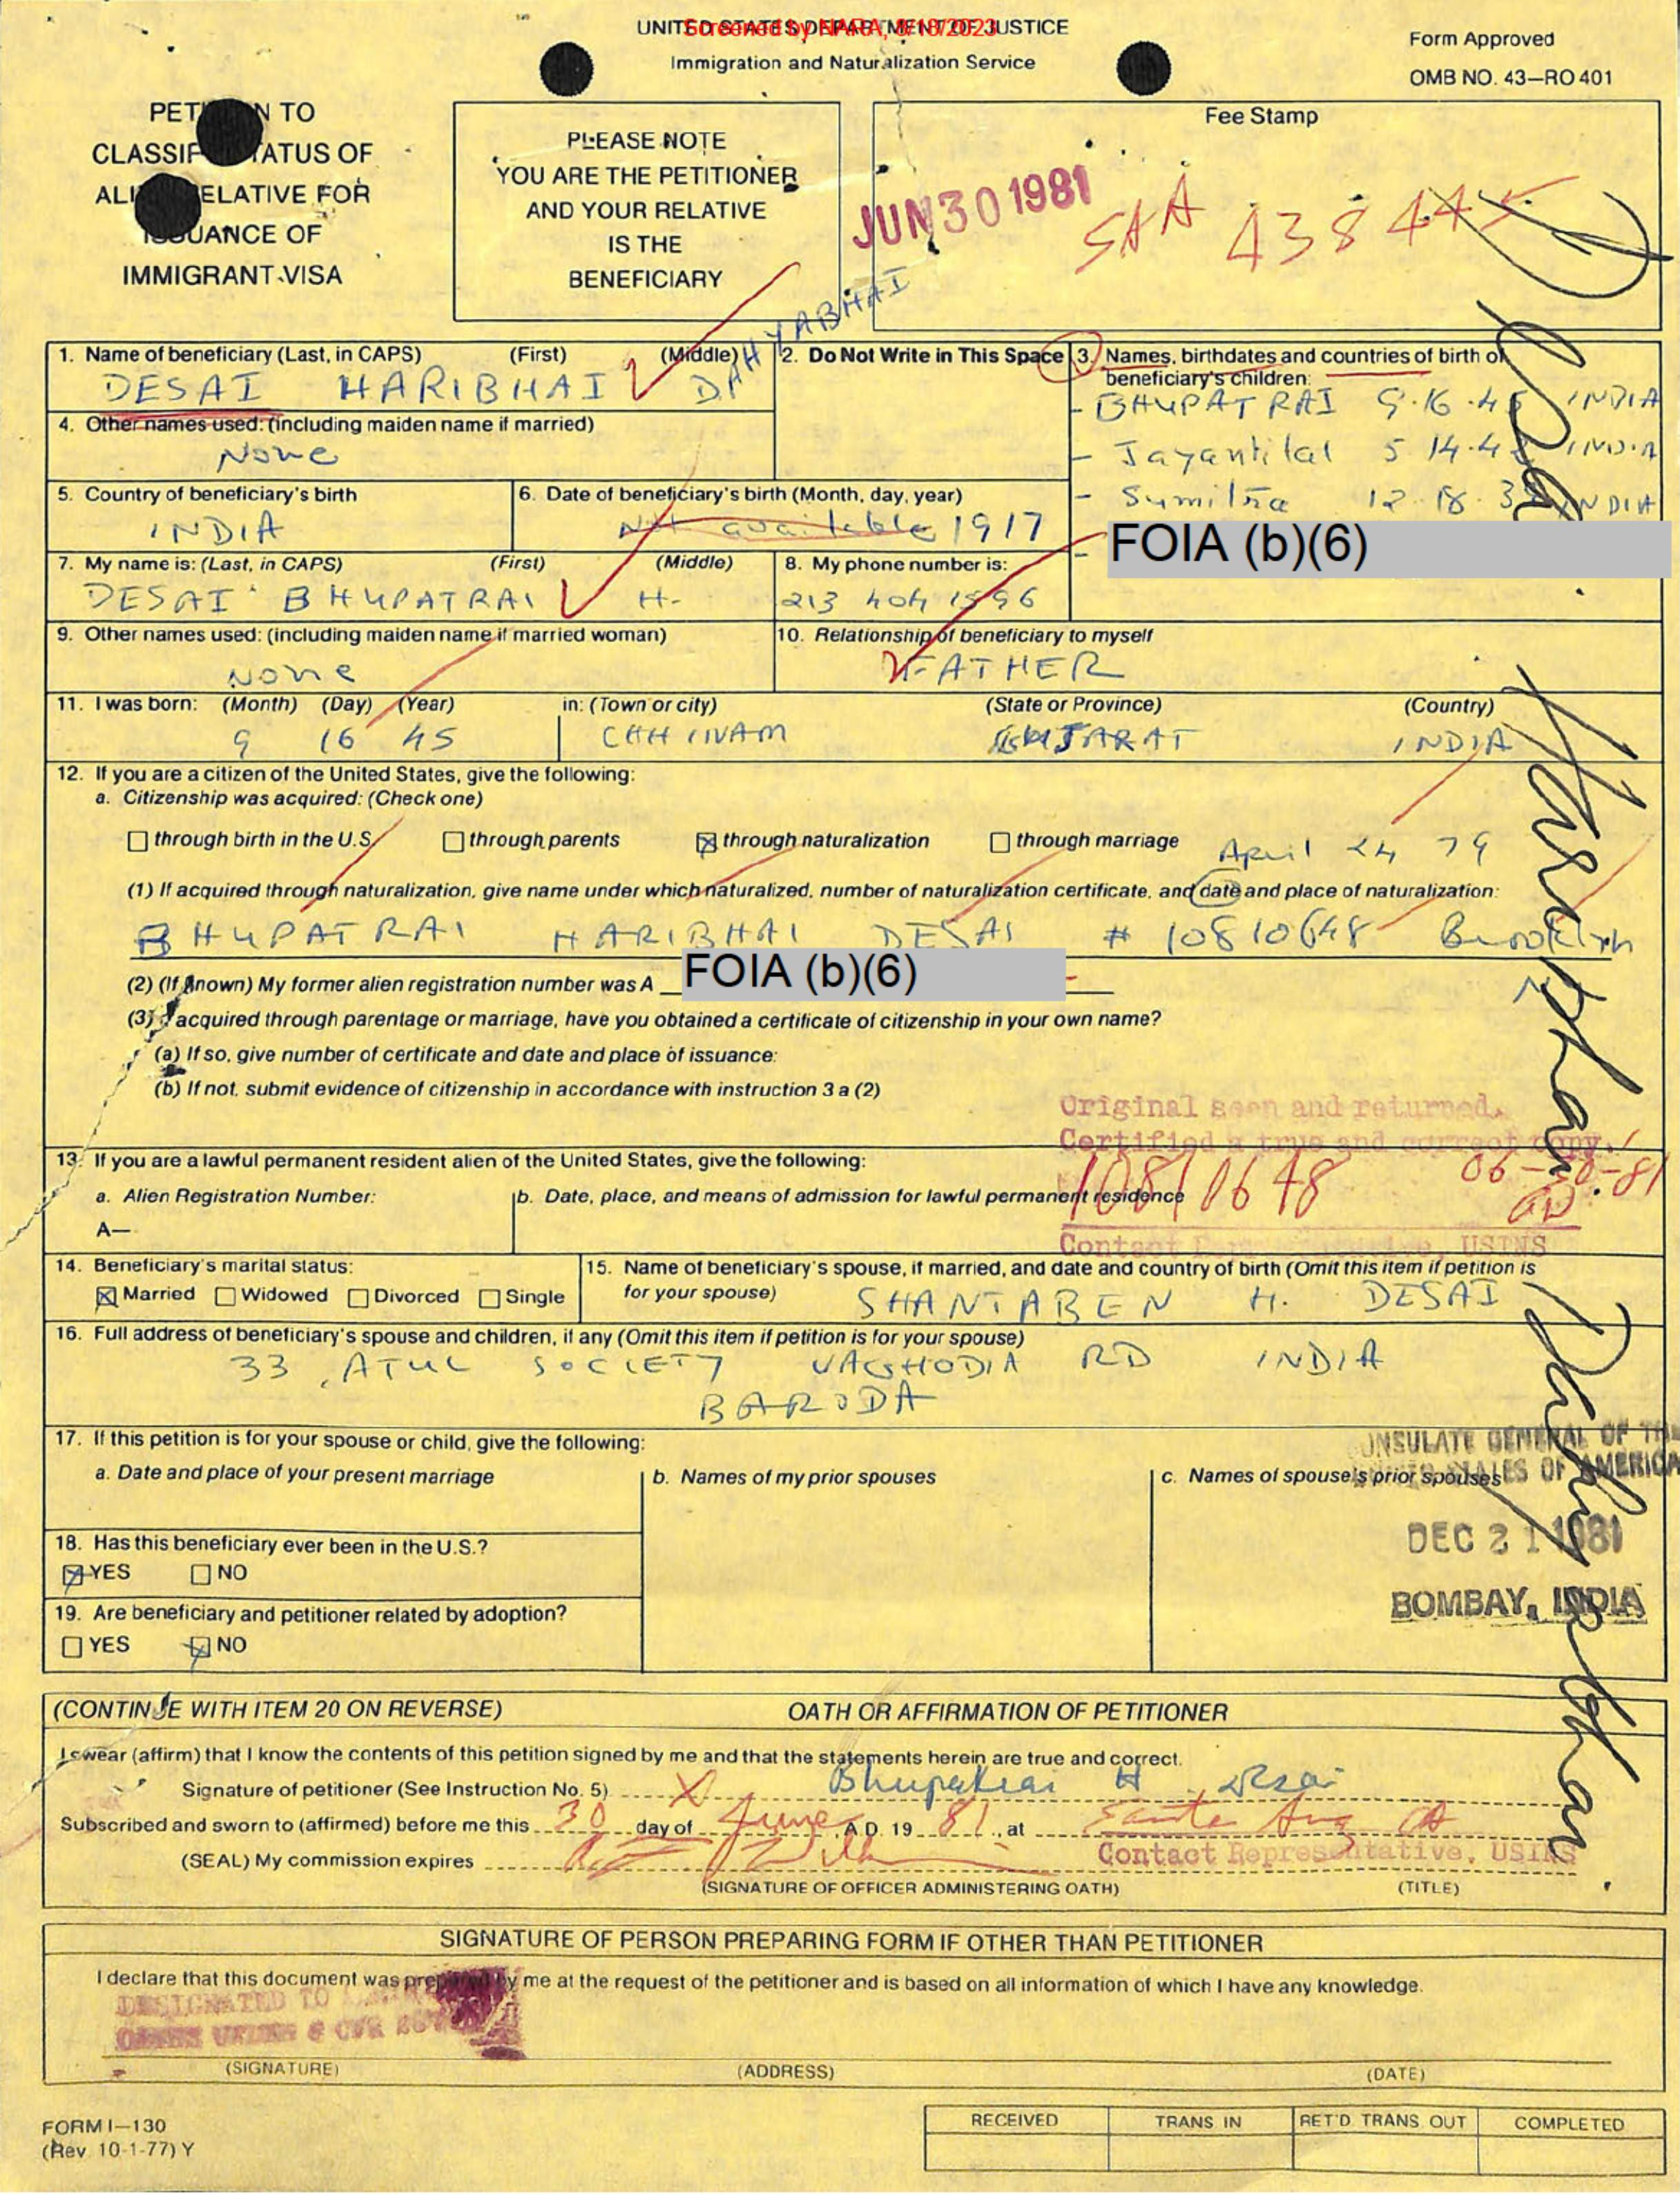 UNITED STATES DEPARTMENT OF JUSTICE
Screened by NARA, 8/18/2023
Immigration and Naturalization Service
Form Approved
OMB NO. 43—RO 401
PET N TO
CLASSIF TATUS OF
ALI ELATIVE FOR
ISSUANCE OF
IMMIGRANT VISA
PLEASE NOTE
YOU ARE THE PETITIONER
AND YOUR RELATIVE
IS THE
BENEFICIARY
Fee Stamp
JUN 30 1981
SAA 438445
1. Name of beneficiary (Last, in CAPS) (First) (Middle)
DESAI HARIBHAI DAHYABHAI
2. Do Not Write in This Space
3. Names, birthdates and countries of birth of
beneficiary's children:
- BHUPATRAI 9·16·45 INDIA
- Jayantilal 5 14·4 INDIA
- Sumitra 12·18·3 INDIA
- FOIA (b)(6)
4. Other names used: (including maiden name if married)
None
5. Country of beneficiary's birth
INDIA
6. Date of beneficiary's birth (Month, day, year)
Not available 1917
7. My name is: (Last, in CAPS) (First) (Middle)
DESAI BHUPATRAI H-
8. My phone number is:
213 404 1596
9. Other names used: (including maiden name if married woman)
None
10. Relationship of beneficiary to myself
FATHER
11. I was born: (Month) (Day) (Year) in: (Town or city) (State or Province) (Country)
9 16 45 CHHINAM GUJARAT INDIA
12. If you are a citizen of the United States, give the following:
a. Citizenship was acquired: (Check one)
through birth in the U.S. through parents through naturalization through marriage
April 24 79
(1) If acquired through naturalization, give name under which naturalized, number of naturalization certificate, and date and place of naturalization:
BHUPATRAI HARIBHAI DESAI # 10810648 Brooklyn
(2) (If known) My former alien registration number was A FOIA (b)(6)
(3) If acquired through parentage or marriage, have you obtained a certificate of citizenship in your own name?
(a) If so, give number of certificate and date and place of issuance:
(b) If not, submit evidence of citizenship in accordance with instruction 3 a (2)
Original seen and returned.
Certified a true and correct copy.
10810648 06-30-81
Contact Representative, USINS
13. If you are a lawful permanent resident alien of the United States, give the following:
a. Alien Registration Number:
A—
b. Date, place, and means of admission for lawful permanent residence
14. Beneficiary's marital status:
Married Widowed Divorced Single
15. Name of beneficiary's spouse, if married, and date and country of birth (Omit this item if petition is
for your spouse)
SHANTABEN H. DESAI
16. Full address of beneficiary's spouse and children, if any (Omit this item if petition is for your spouse)
33, ATUL SOCIETY VAGHODIA RD INDIA
BARODA
17. If this petition is for your spouse or child, give the following:
a. Date and place of your present marriage
b. Names of my prior spouses
c. Names of spouse's prior spouses
ONSULATE GENERAL OF THE
UNITED STATES OF AMERICA
DEC 21 1981
BOMBAY, INDIA
18. Has this beneficiary ever been in the U.S.?
YES NO
19. Are beneficiary and petitioner related by adoption?
YES NO
(CONTINUE WITH ITEM 20 ON REVERSE)
OATH OR AFFIRMATION OF PETITIONER
I swear (affirm) that I know the contents of this petition signed by me and that the statements herein are true and correct.
Signature of petitioner (See Instruction No. 5) X Bhupatrai H Desai
Subscribed and sworn to (affirmed) before me this 30 day of June, A.D. 19 81, at Santa Ana CA
(SEAL) My commission expires
Contact Representative, USINS
(SIGNATURE OF OFFICER ADMINISTERING OATH) (TITLE)
SIGNATURE OF PERSON PREPARING FORM IF OTHER THAN PETITIONER
I declare that this document was prepared by me at the request of the petitioner and is based on all information of which I have any knowledge.
DESIGNATED TO
OATHS UNDER 8 CFR
(SIGNATURE) (ADDRESS) (DATE)
FORM I—130
(Rev. 10-1-77) Y
RECEIVED TRANS IN RET'D. TRANS. OUT COMPLETED